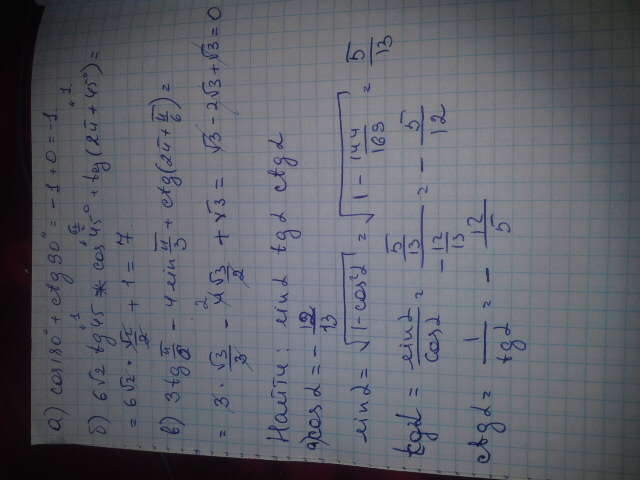 а) cos 180° + ctg 90° = -1 + 0 = -1
б) 6√2 tg 45 * cos 45° + tg (2π + 45°) =
= 6√2 · √2/2 + 1 = 7
в) 3 tg π/6 - 4 sin π/3 + ctg (2π + π/6) =
= 3 · √3/3 - 4√3/2 + √3 = √3 - 2√3 + √3 = 0
Найти: sin α tg α ctg α
cos α = - 12/13
sin α = √(1 - cos² α) = √(1 - 144/169) = 5/13
tg α = sin α / cos α = 5/13 / - 12/13 = - 5/12
ctg α = 1 / tg α = - 12/5